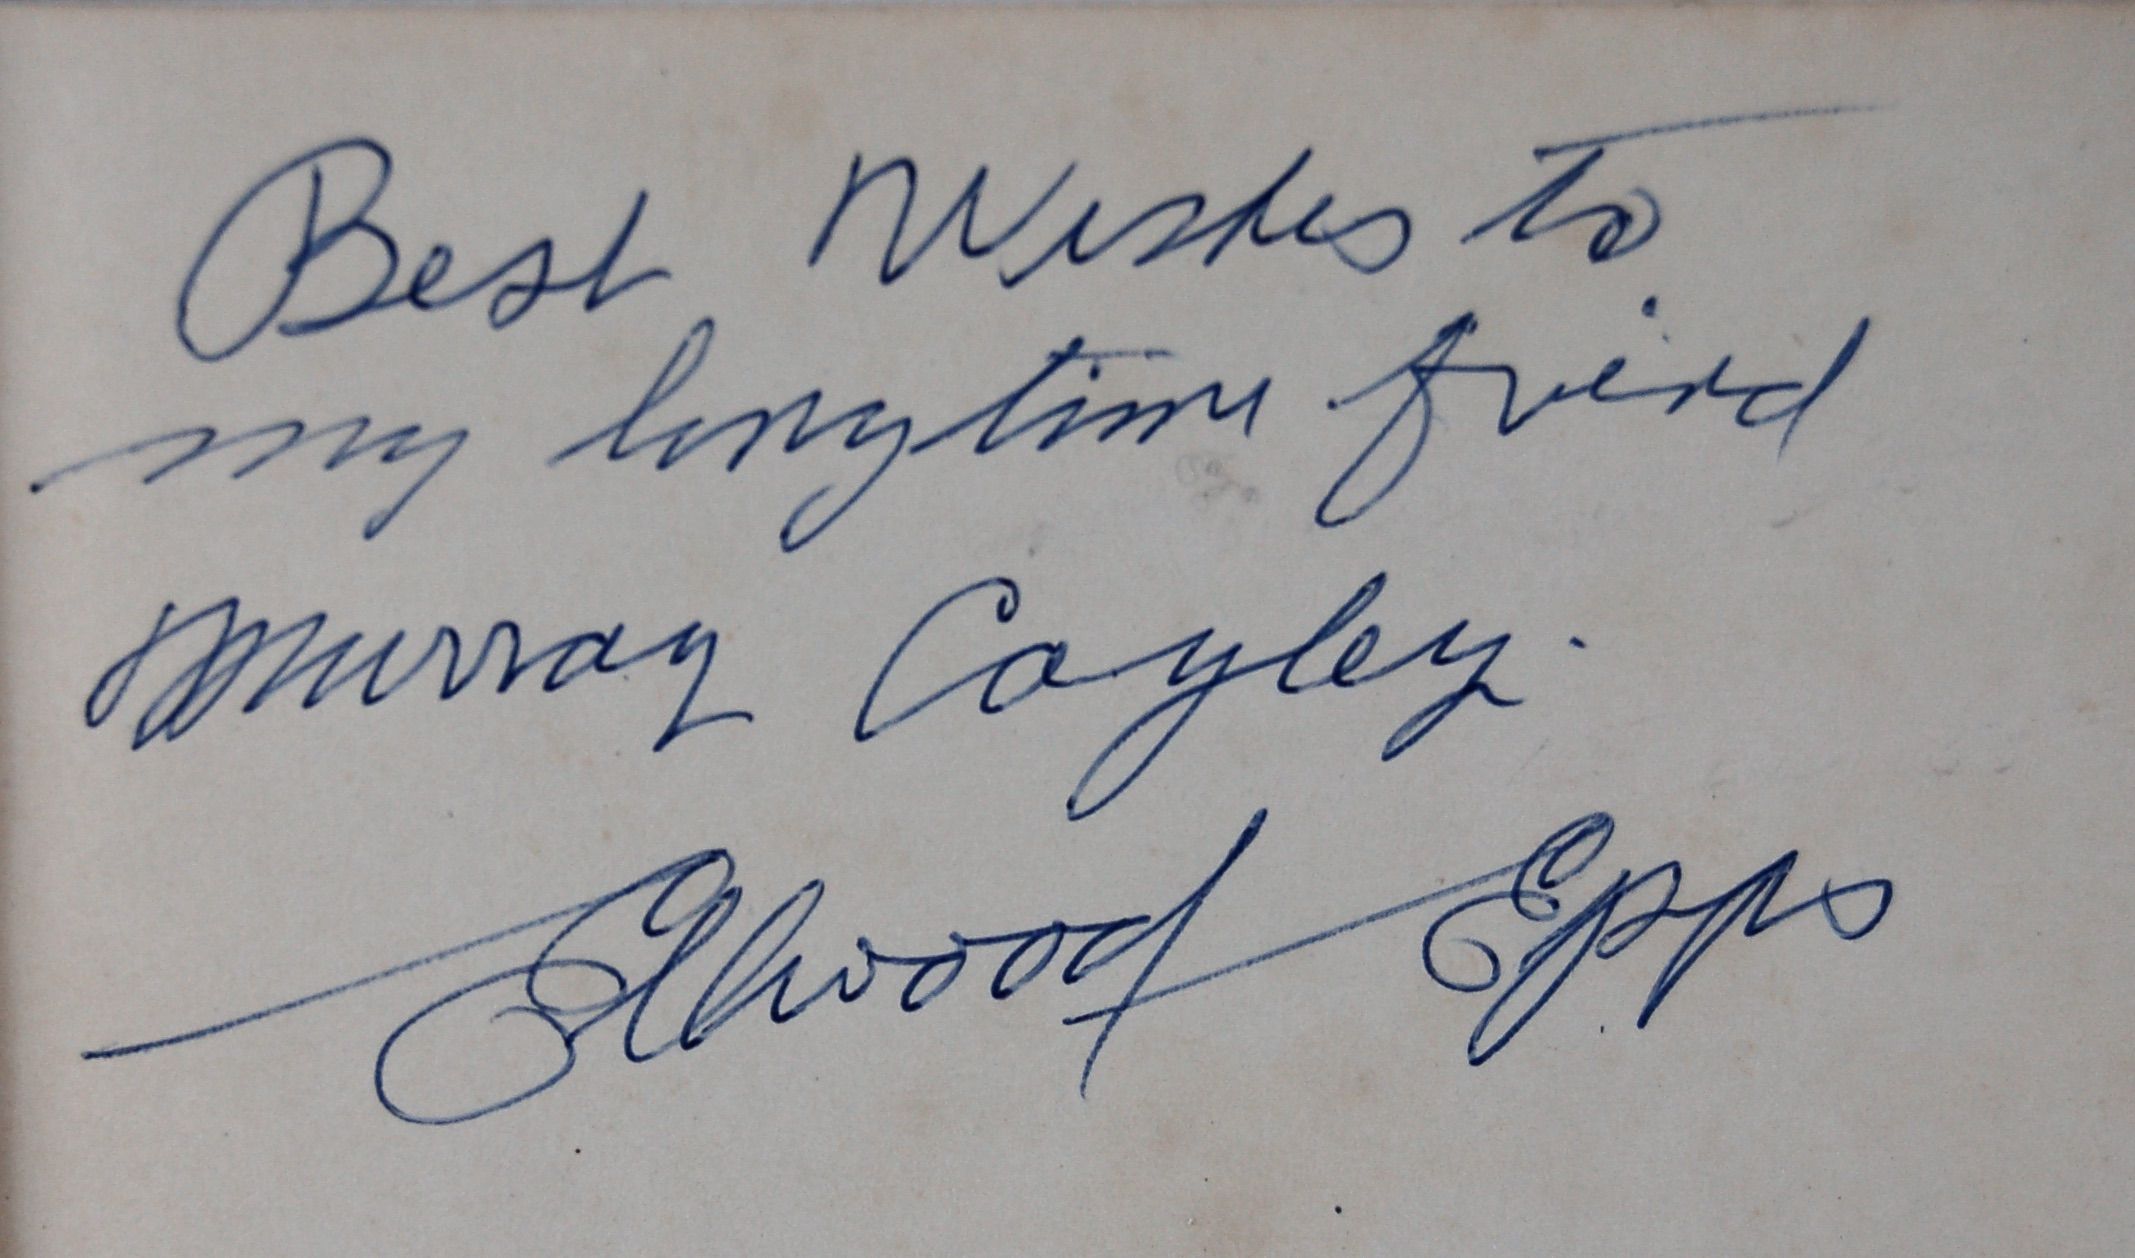 Best Wishes to
my longtime friend
Murray Cayley.
Ellwood Epps